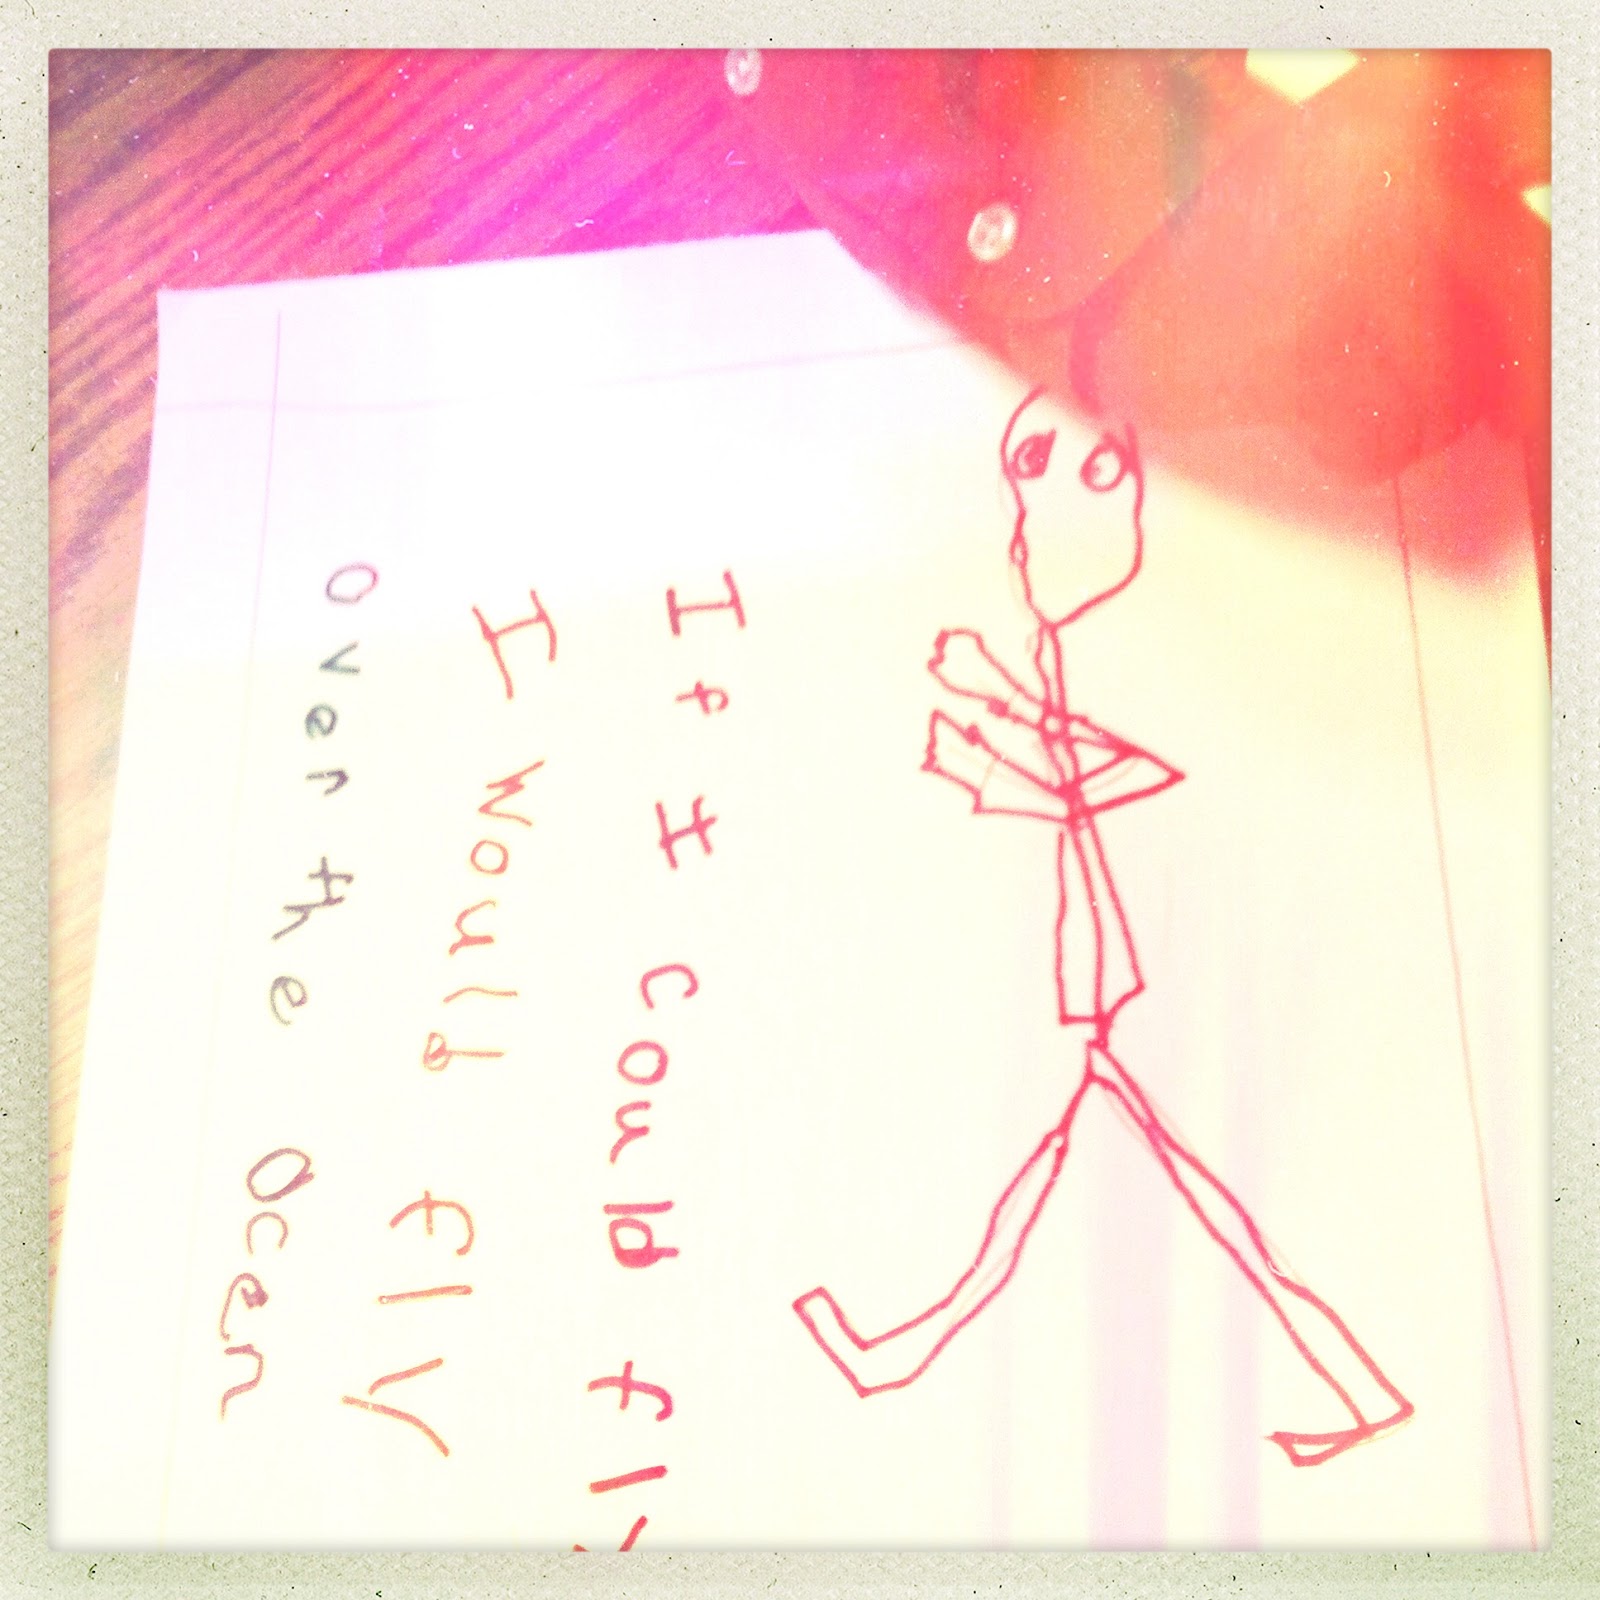 If I could fly
I Would fly
over the Ocen